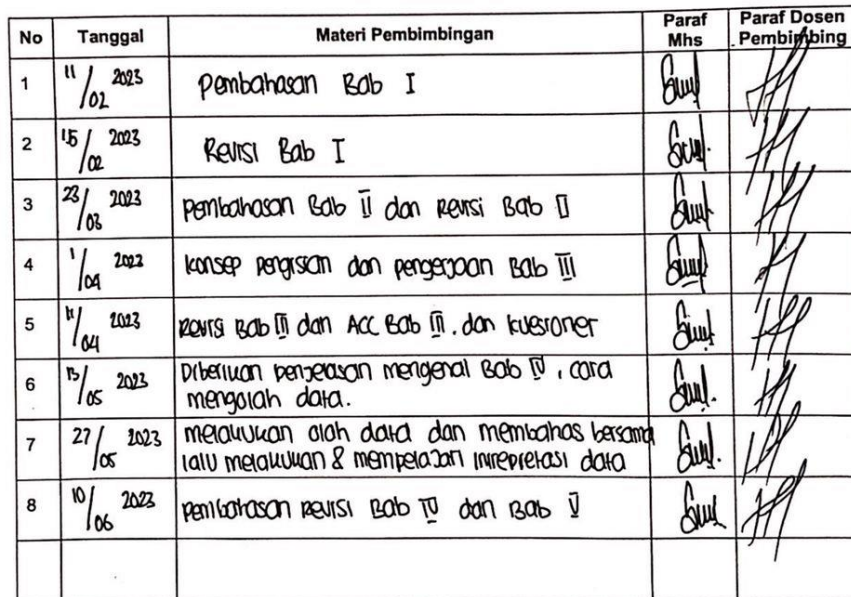 No Tanggal Materi Pembimbingan Paraf Mhs Paraf Dosen Pembimbing
1 11/02 2023 Pembahasan Bab I
2 15/02 2023 Revisi Bab I
3 23/03 2023 Pembahasan Bab II dan Revisi Bab II
4 1/04 2023 Konsep pengisian dan pengerjaan Bab III
5 11/04 2023 Revisi Bab III dan ACC Bab III. dan kuesioner
6 13/05 2023 Diberikan penjelasan mengenai Bab IV, cara
mengolah data.
7 27/05 2023 melakukan olah data dan membahas bersama
lalu melakukan & mempelajari intepretasi data
8 10/06 2023 pembahasan revisi Bab IV dan Bab V